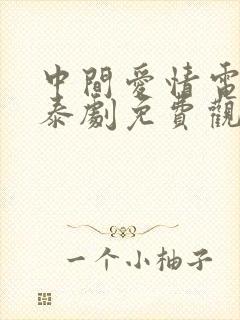 中間愛情電
泰劇免費觀
一个小柚子